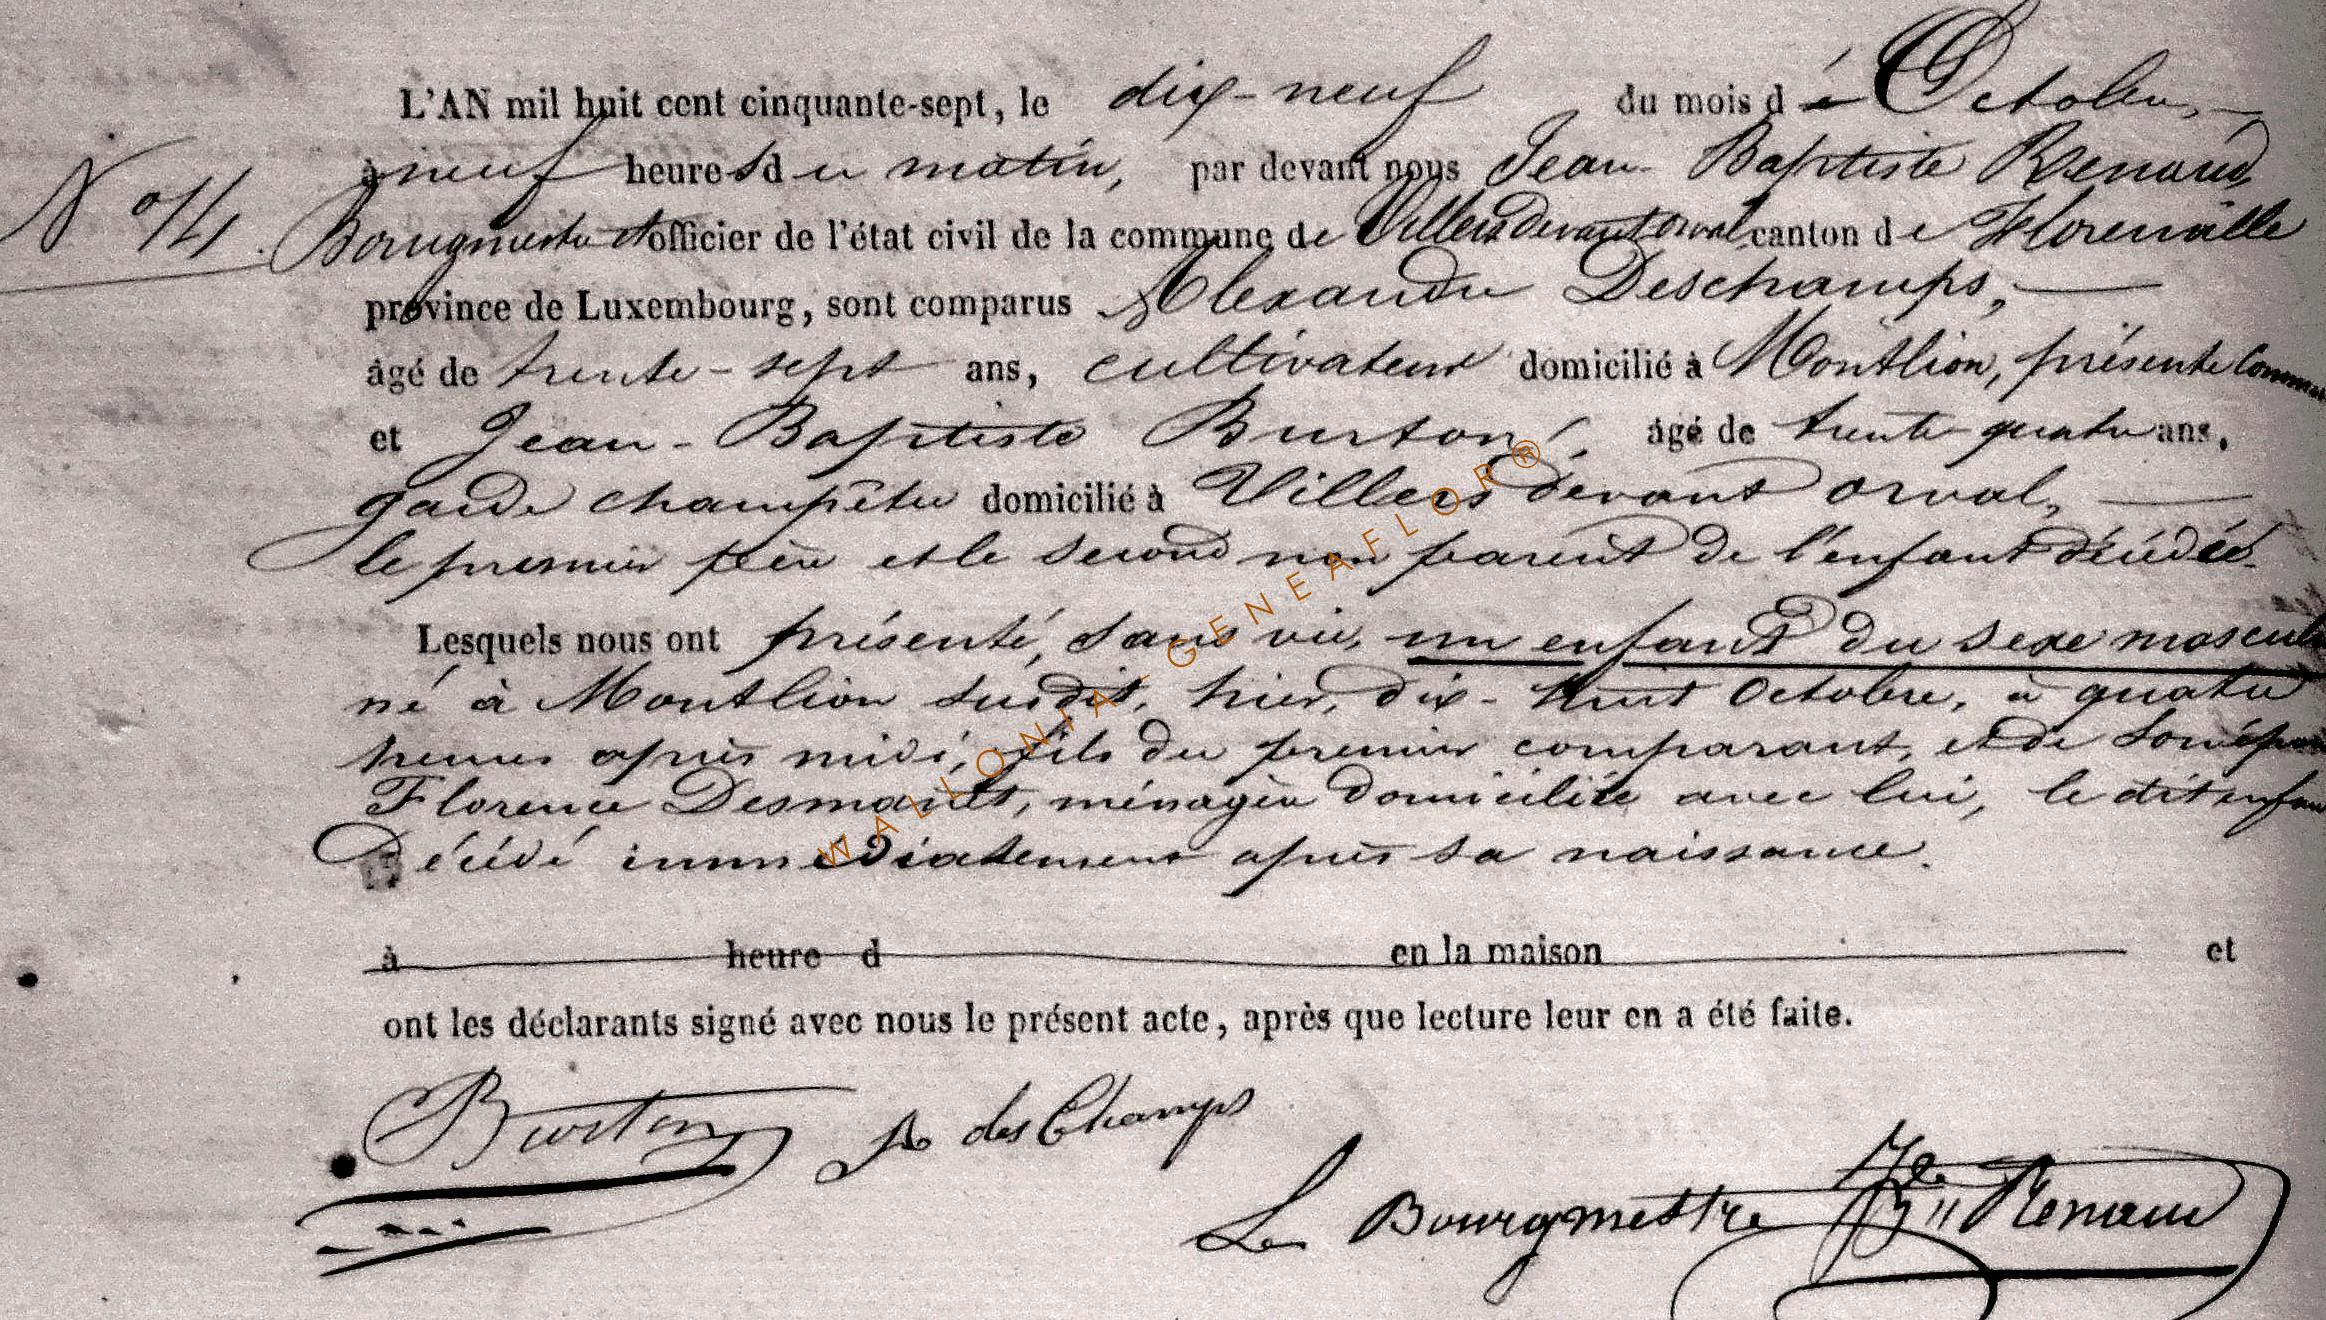 L'AN mil huit cent cinquante-sept, le dix-neuf du mois d'Octobre,
à neuf heures du matin, par devant nous Jean-Baptiste Renaud,
N° 14. Bourgmestre et officier de l'état civil de la commune de Villers devant Orval canton de Florenville
province de Luxembourg, sont comparus Alexandre Deschamps,
âgé de trente-sept ans, cultivateur domicilié à Montlion, présente Commune
et Jean-Baptiste Burton, âgé de trente-quatre ans,
garde champêtre domicilié à Villers devant orval,
le premier père et le second non parent de l'enfant décédé.
Lesquels nous ont présenté, sans vie, un enfant du sexe masculin
né à Montlion susdit, hier, dix-huit Octobre, à quatre
heures après midi, fils du premier comparant, et de son épouse
Florence Desmoults, ménagère domiciliée avec lui, le dit enfant
Décédé immédiatement après sa naissance.
à heure d en la maison et
ont les déclarants signé avec nous le présent acte, après que lecture leur en a été faite.
Burton A desChamps
Le Bourgmestre Renaud
WALLONIA-GENEAFLOR®